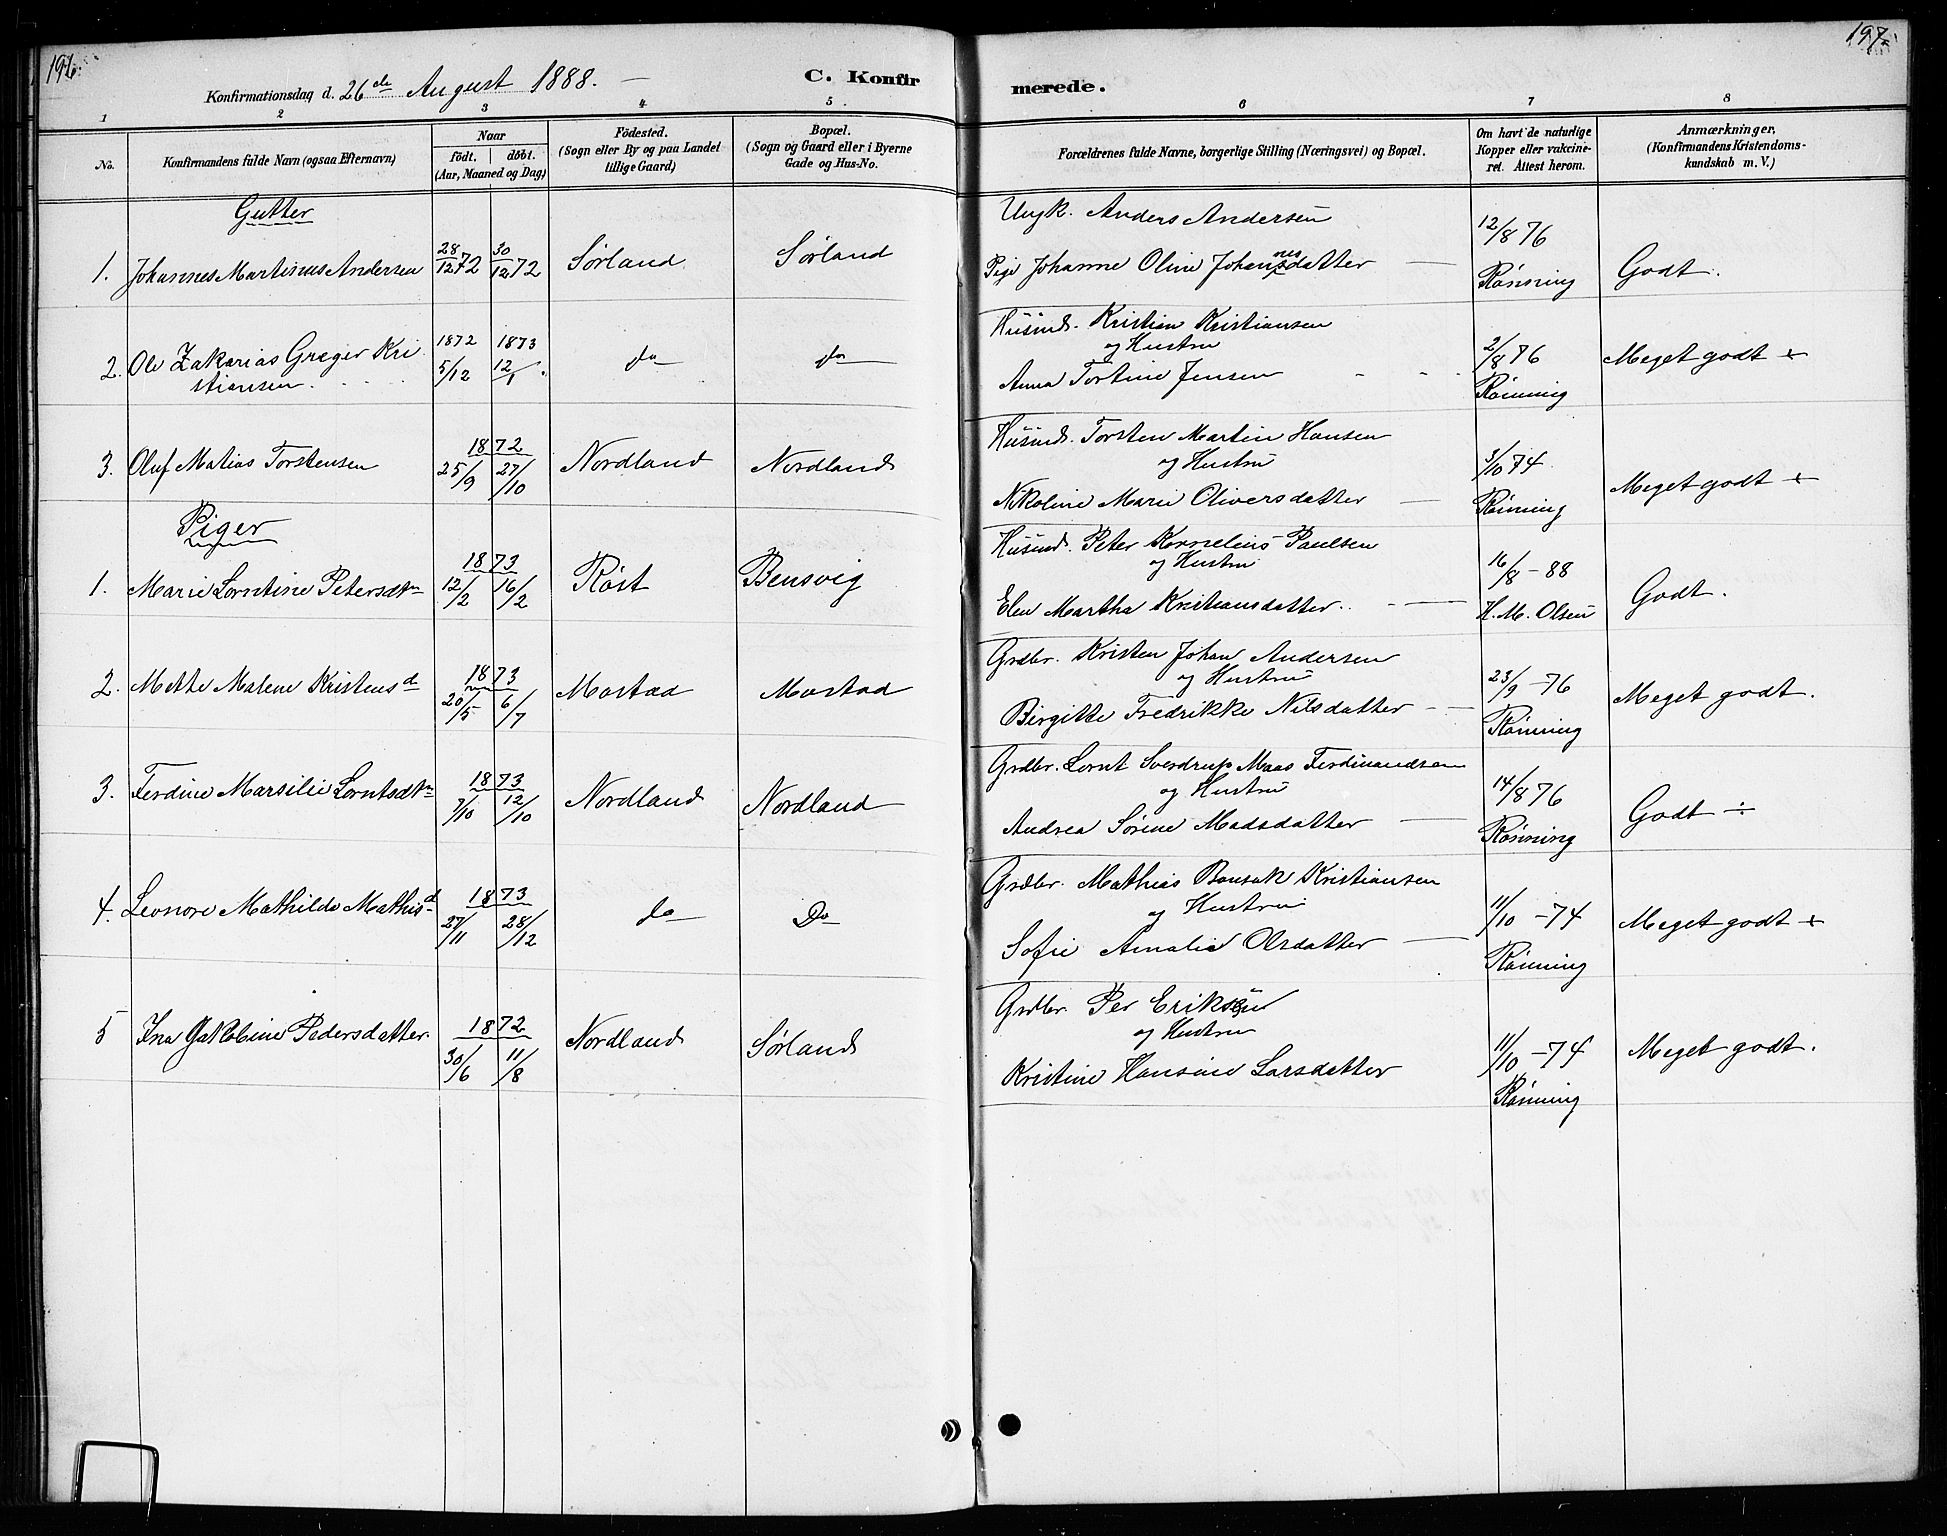 196.
197.
Konfirmationsdag d. 26de August 1888. —
C. Konfir
merede.
1 2 3 4 5 6 7 8
No.
Konfirmandens fulde Navn (ogsaa Efternavn)
Naar
födt. döbt.
(Aar, Maaned og Dag)
Födested.
(Sogn eller By og paa Landet
tillige Gaard)
Bopæl.
(Sogn og Gaard eller i Byerne
Gade og Hus-No.
Forældrenes fulde Navne, borgerlige Stilling (Næringsvei) og Bopæl.
Om havt de naturlige
Kopper eller vakcine-
ret. Attest herom.
Anmærkninger,
(Konfirmandens Kristendoms-
kundskab m. V.)
Gutter
Ungk. Anders Andersen
1. Johannes Martinus Andersen 28/12 72 30/12 72 Sørland Sørland
Pige Johanne Oline Johannesdatter —
12/8 76
Rønning
Godt.
2. Ole Zakarias Græger Kri
stiansen.
1872 1873
5/12 12/1
do do
Husmd. Kristian Kristiansen
og Hustru
Anna Tortine Jensen
2/8 76
Rønning
Meget godt +
3. Oluf Matias Torstensen
1872
25/9 27/10
Nordland Nordland
Husmd. Torsten Martin Hansen
og Hustru
Nikoline Marie Oliversdatter —
3/10 74
Rønning
Meget godt +
Piger
1. Marie Lorntine Petersdtn
1873
12/2 16/2
Røst Bensvig
Husmd. Peter Kornelius Paulsen
og Hustru
Elen Martha Kristiansdatter. —
16/8 - 88
H. M. Olsen
Godt.
2. Mette Malene Kristensd
1873
20/5 6/7
Mostad Mostad
Grdbr. Kristen Johan Andersen
og Hustru
Birgitte Fredrikke Nilsdatter —
23/9 - 76
Rønning
Meget godt.
3. Ferdine Marsilie Lorntsdtn
1873
7/10 12/10
Nordland Nordland
Grdbr. Lornt Sverdrup Maas Ferdinandsen
og Hustru
Andrea Sørine Madsdatter —
14/8 76
Rønning
Godt ÷
4. Leonore Mathilde Mathisd
1873
27/11 28/12
do Do
Grdbr. Mathias Bonsak Kristiansen
og Hustru
Sofie Amalie Olsdatter —
11/10 - 74
Rønning
Meget godt +
5 Ina Jakobine Pedersdatter
1872
30/6 11/8
Nordland Sørland
Grdbr. Per Eriksen
og Hustru
Kristine Hansine Larsdatter
11/10 - 74
Rønning
Meget godt.